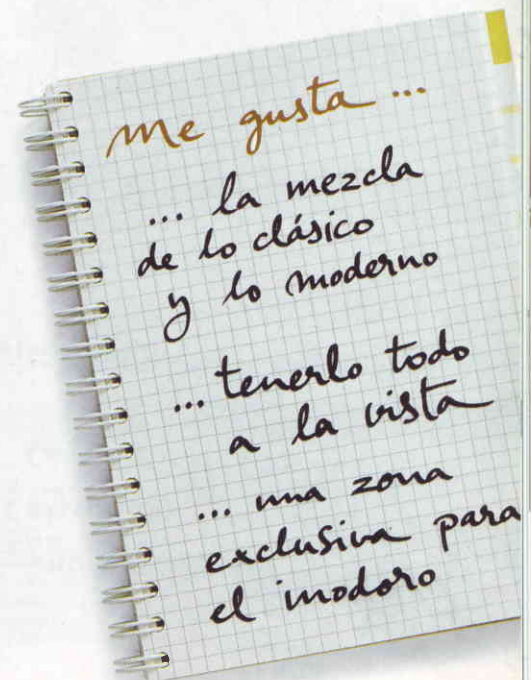 me gusta...
... la mezcla
de lo clásico
y lo moderno
... tenerlo todo
a la vista
... una zona
exclusiva para
el inodoro